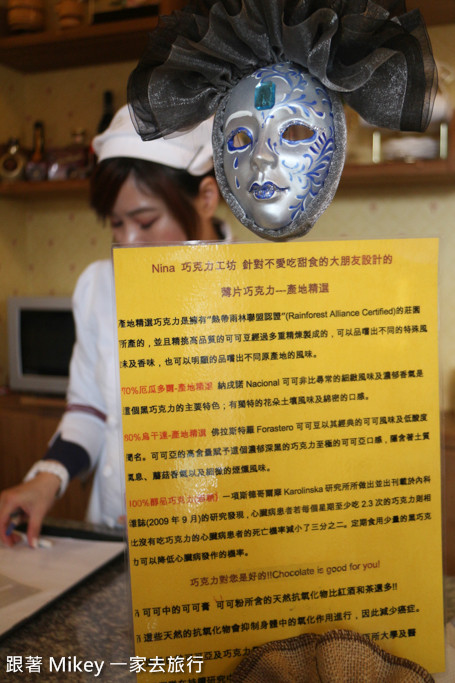 Nina 巧克力工坊 針對不愛吃甜食的大朋友設計的
薄片巧克力---產地精選
產地精選巧克力是擁有"熱帶雨林聯盟認證"(Rainforest Alliance Certified)的莊園
所產的，並且精挑高品質的可可豆經過多重精煉製成的，可以品嚐出不同的特殊風
味及香味，也可以明顯的品嚐出不同原產地的風味。
70%厄瓜多爾-產地精選 納戌瑙 Nacional 可可非比尋常的細緻風味及濃郁香氣是
這個黑巧克力的主要特色；有獨特的花朵土壤風味及綿密的口感。
80%烏干達-產地精選 佛拉斯特羅 Forastero 可可豆以其經典的可可風味及低酸度
聞名。可可亞的高含量賦予這個濃郁深黑的巧克力至極的可可亞口感，蘊含著土質
氣息、蘑菇香氣以及細微的煙燻風味。
100%醇品巧克力 一項斯德哥爾摩 Karolinska 研究所所做出並出刊載於內科
雜誌(2009 年 9 月)的研究發現，心臟病患者若每個星期至少吃 2.3 次的巧克力則相
比沒有吃巧克力的心臟病患者的死亡機率減小了三分之二。定期食用少量的黑巧克
力可以降低心臟病發作的機率。
巧克力對您是好的!!Chocolate is good for you!
可可中的可可膏 可可粉所含的天然抗氧化物比紅酒和茶還多!!
這些天然的抗氧化物會抑制身體中的氧化作用進行，因此減少癌症。
亞及巧克力
所大學及醫
跟著 Mikey 一家去旅行